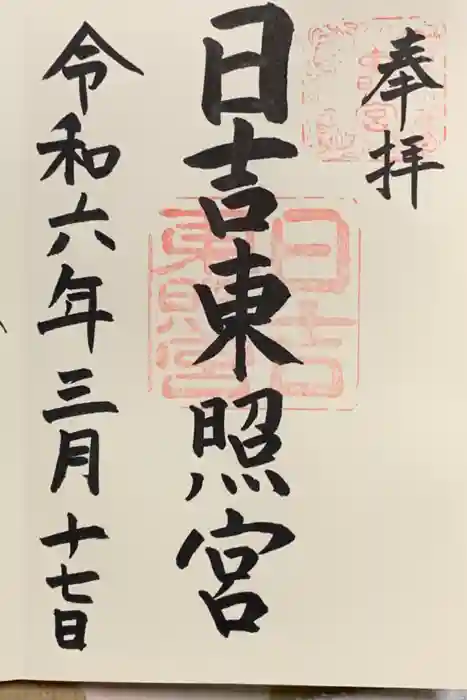 奉拝
日吉東照宮
令和六年三月十七日
日吉
東照宮